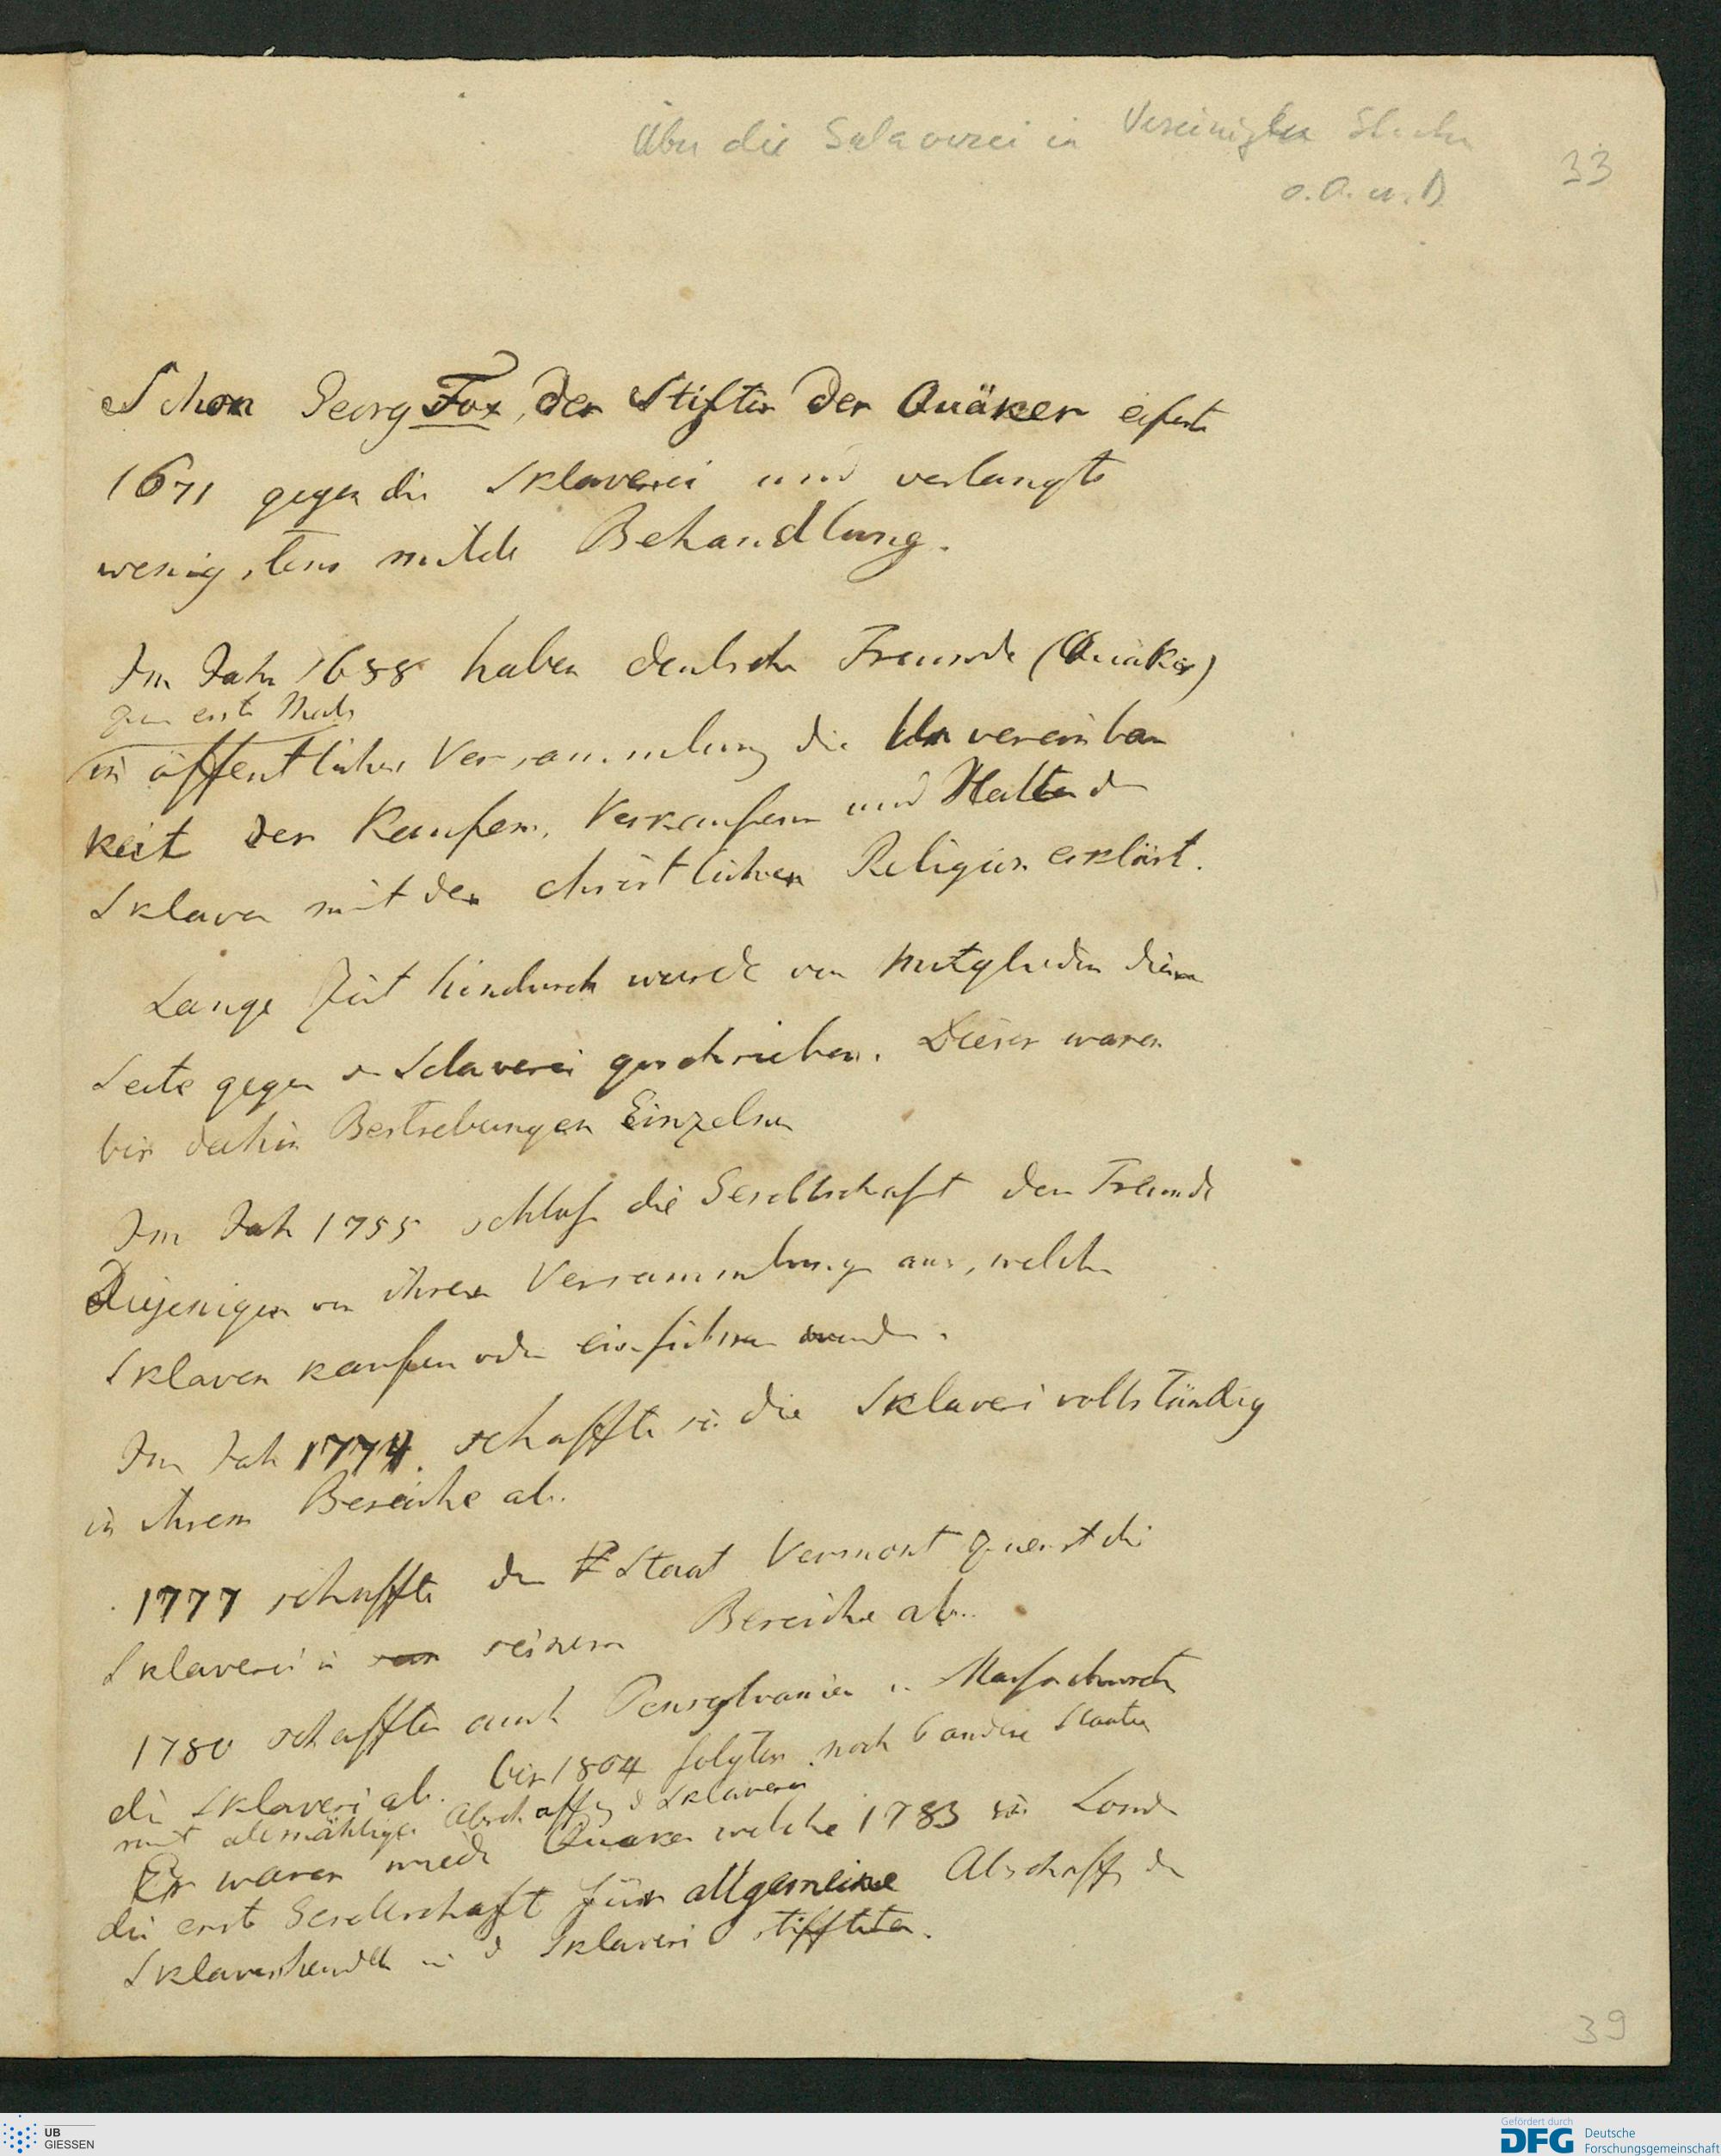 Über die Sclaverei in Vereinigten Staaten
o. O. u. D
33
Schon Georg Fox, der Stifter der Quäker eiferte
1671 gegen die Sklaverei und verlangte
wenigstens milde Behandlung.
Im Jahr 1688 haben deutsche Freunde (Quäker)
zum erste Male
in öffentlicher Versammlung die Unvereinbar
keit des Kaufens, Verkaufens und Haltens d
Sklaven mit der christlichen Religion erklärt.
Lange Zeit hindurch wurde von Mitgliedern dieser
Secte gegen d Sclaverei geschrieben. Dieses waren
bis dahin Bestrebungen Einzelner
Im Jahr 1755 schloß die Gesellschaft der Freunde
Diejenigen von ihren Versammlungen aus, welche
Sklaven kaufen oder einführen wurden.
Im Jahr 1774 schaffte sie die Sklaverei vollständig
in ihrem Bereiche ab.
1777 schaffte der Staat Vermont zuerst die
Sklaverei in seinem Bereiche ab.
1780 schafften auch Pensylvanien u. Massachusets
die Sklaverei ab. bis 1804 folgten noch 6 andere Staaten
mit allmähliger Abschaffg d Sklaverei
Es waren wieder Quaker welche 1783 in London
die erste Gesellschaft für allgemeine Abschaffg des
Sklavenhandels u d Sklaverei stiffteten.
39
UB
GIESSEN
Gefördert durch
DFG Deutsche
Forschungsgemeinschaft